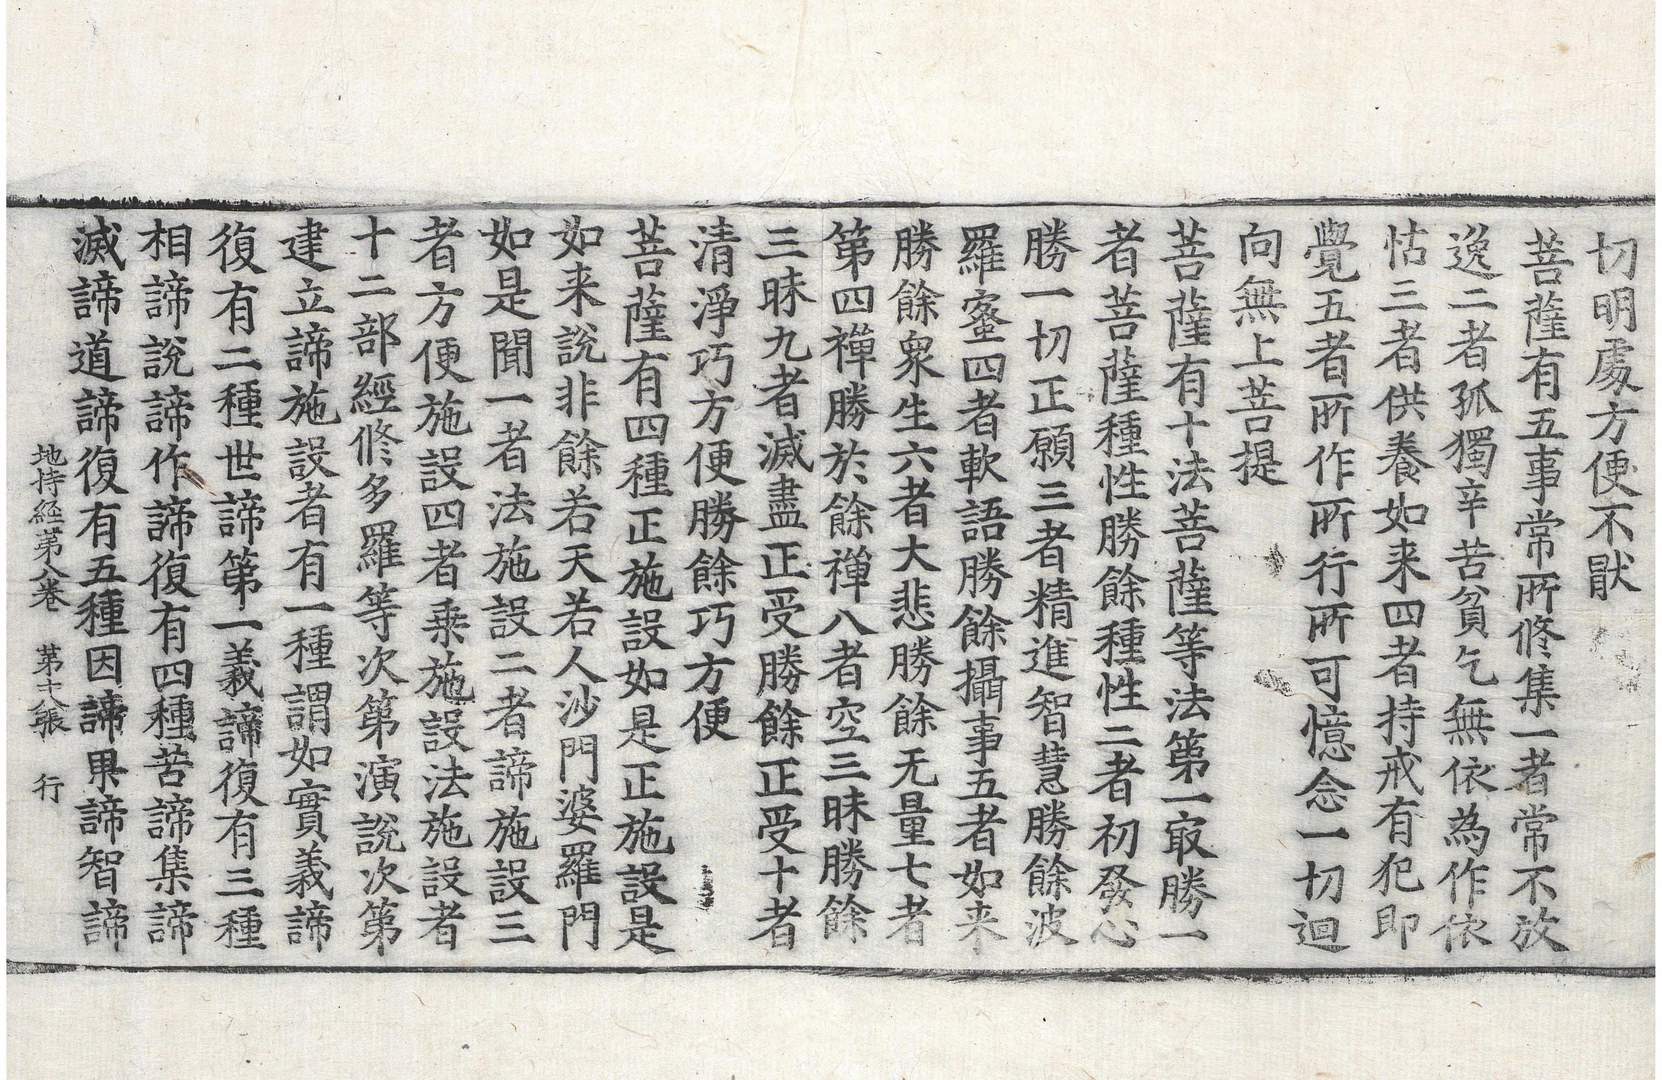 切明處方便不猒
菩薩有五事常所修集一者常不放
逸二者孤獨辛苦貧乞無依為作依
怙三者供養如来四者持戒有犯即
覺五者所作所行所可憶念一切迴
向無上菩提
菩薩有十法菩薩等法第一㝡勝一
者菩薩種性勝餘種性二者初發心
勝一切正願三者精進智慧勝餘波
羅蜜四者軟語勝餘攝事五者如来
勝餘衆生六者大悲勝餘无量七者
第四禪勝於餘禪八者空三昧勝餘
三昧九者滅盡正受勝餘正受十者
清淨巧方便勝餘巧方便
菩薩有四種正施設如是正施設是
如来說非餘若天若人沙門婆羅門
如是聞一者法施設二者諦施設三
者方便施設四者乗施設法施設者
十二部經修多羅等次第演說次第
建立諦施設者有一種謂如實義諦
復有二種世諦第一義諦復有三種
相諦說諦作諦復有四種苦諦集諦
滅諦道諦復有五種因諦果諦智諦
地持経苐八巻　苐十八張　行